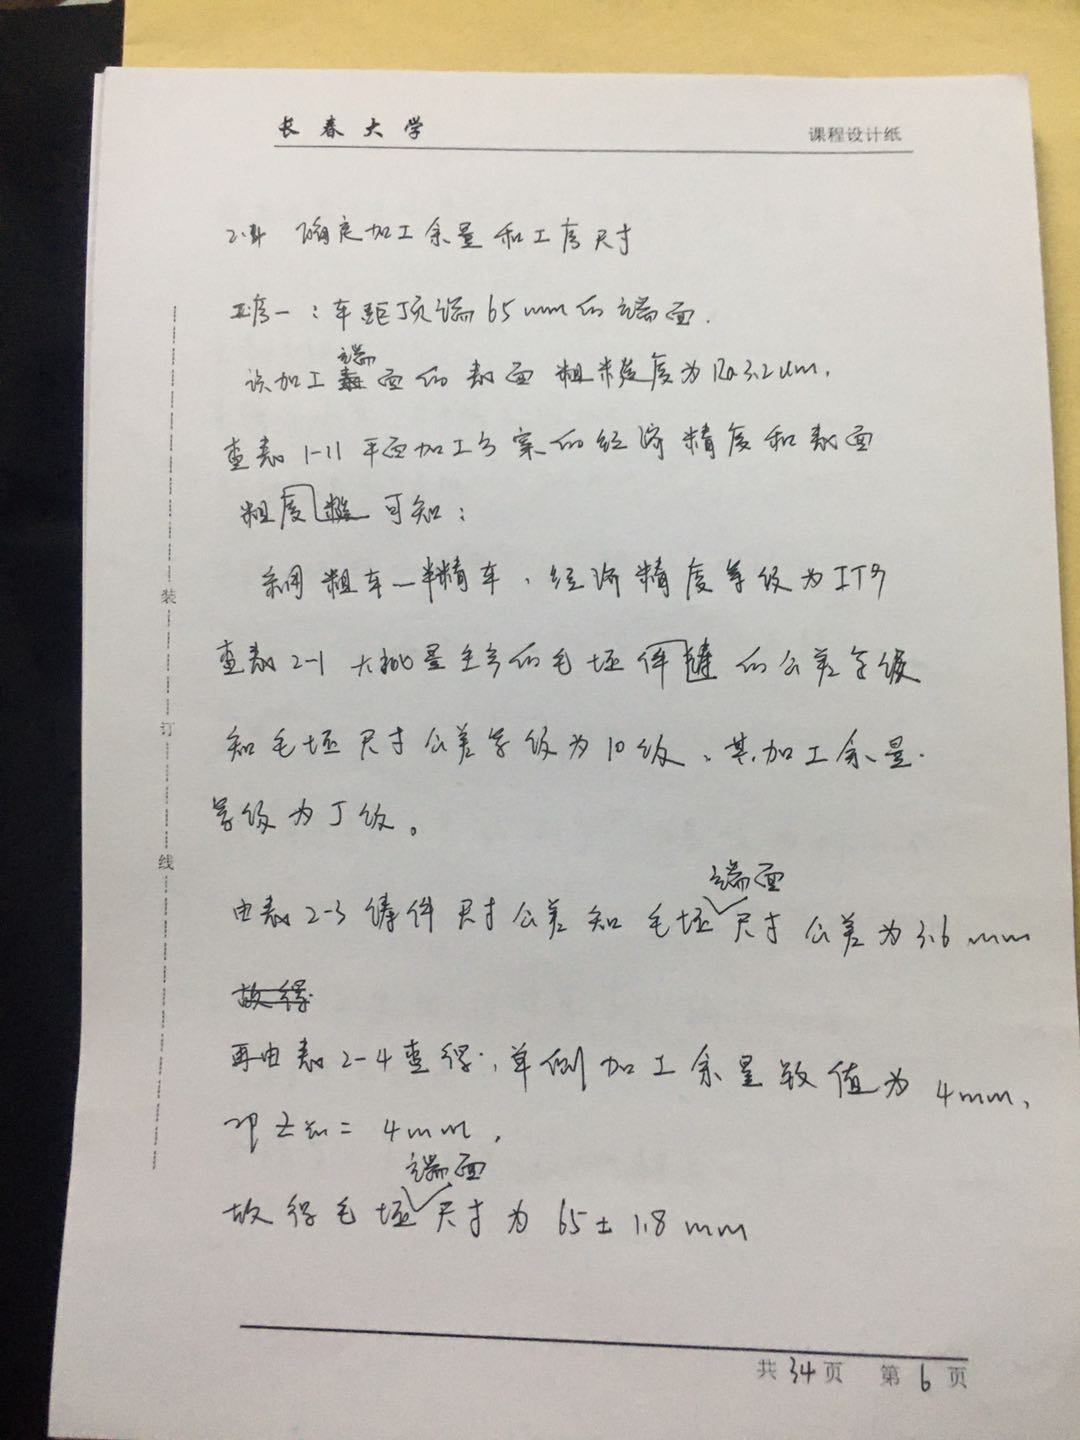 长春大学
课程设计纸
2.4 确定加工余量和工序尺寸
工序一：车距顶端65mm的端面.
该加工端面的表面粗糙度为Ra3.2um,
查表1-11平面加工方案的经济精度和表面
粗度糙可知：
采用粗车—半精车，经济精度等级为IT9
查表2-1大批量生产的毛坯件铸的公差等级
知毛坯尺寸公差等级为10级、其加工余量
等级为J级。
端面
由表2-3铸件尺寸公差知毛坯尺寸公差为3.6mm
故得
再由表2-4查得,单侧加工余量数值为4mm,
即Z=4mm,
端面
故得毛坯尺寸为65±1.8mm
装
订
线
共34页 第6页